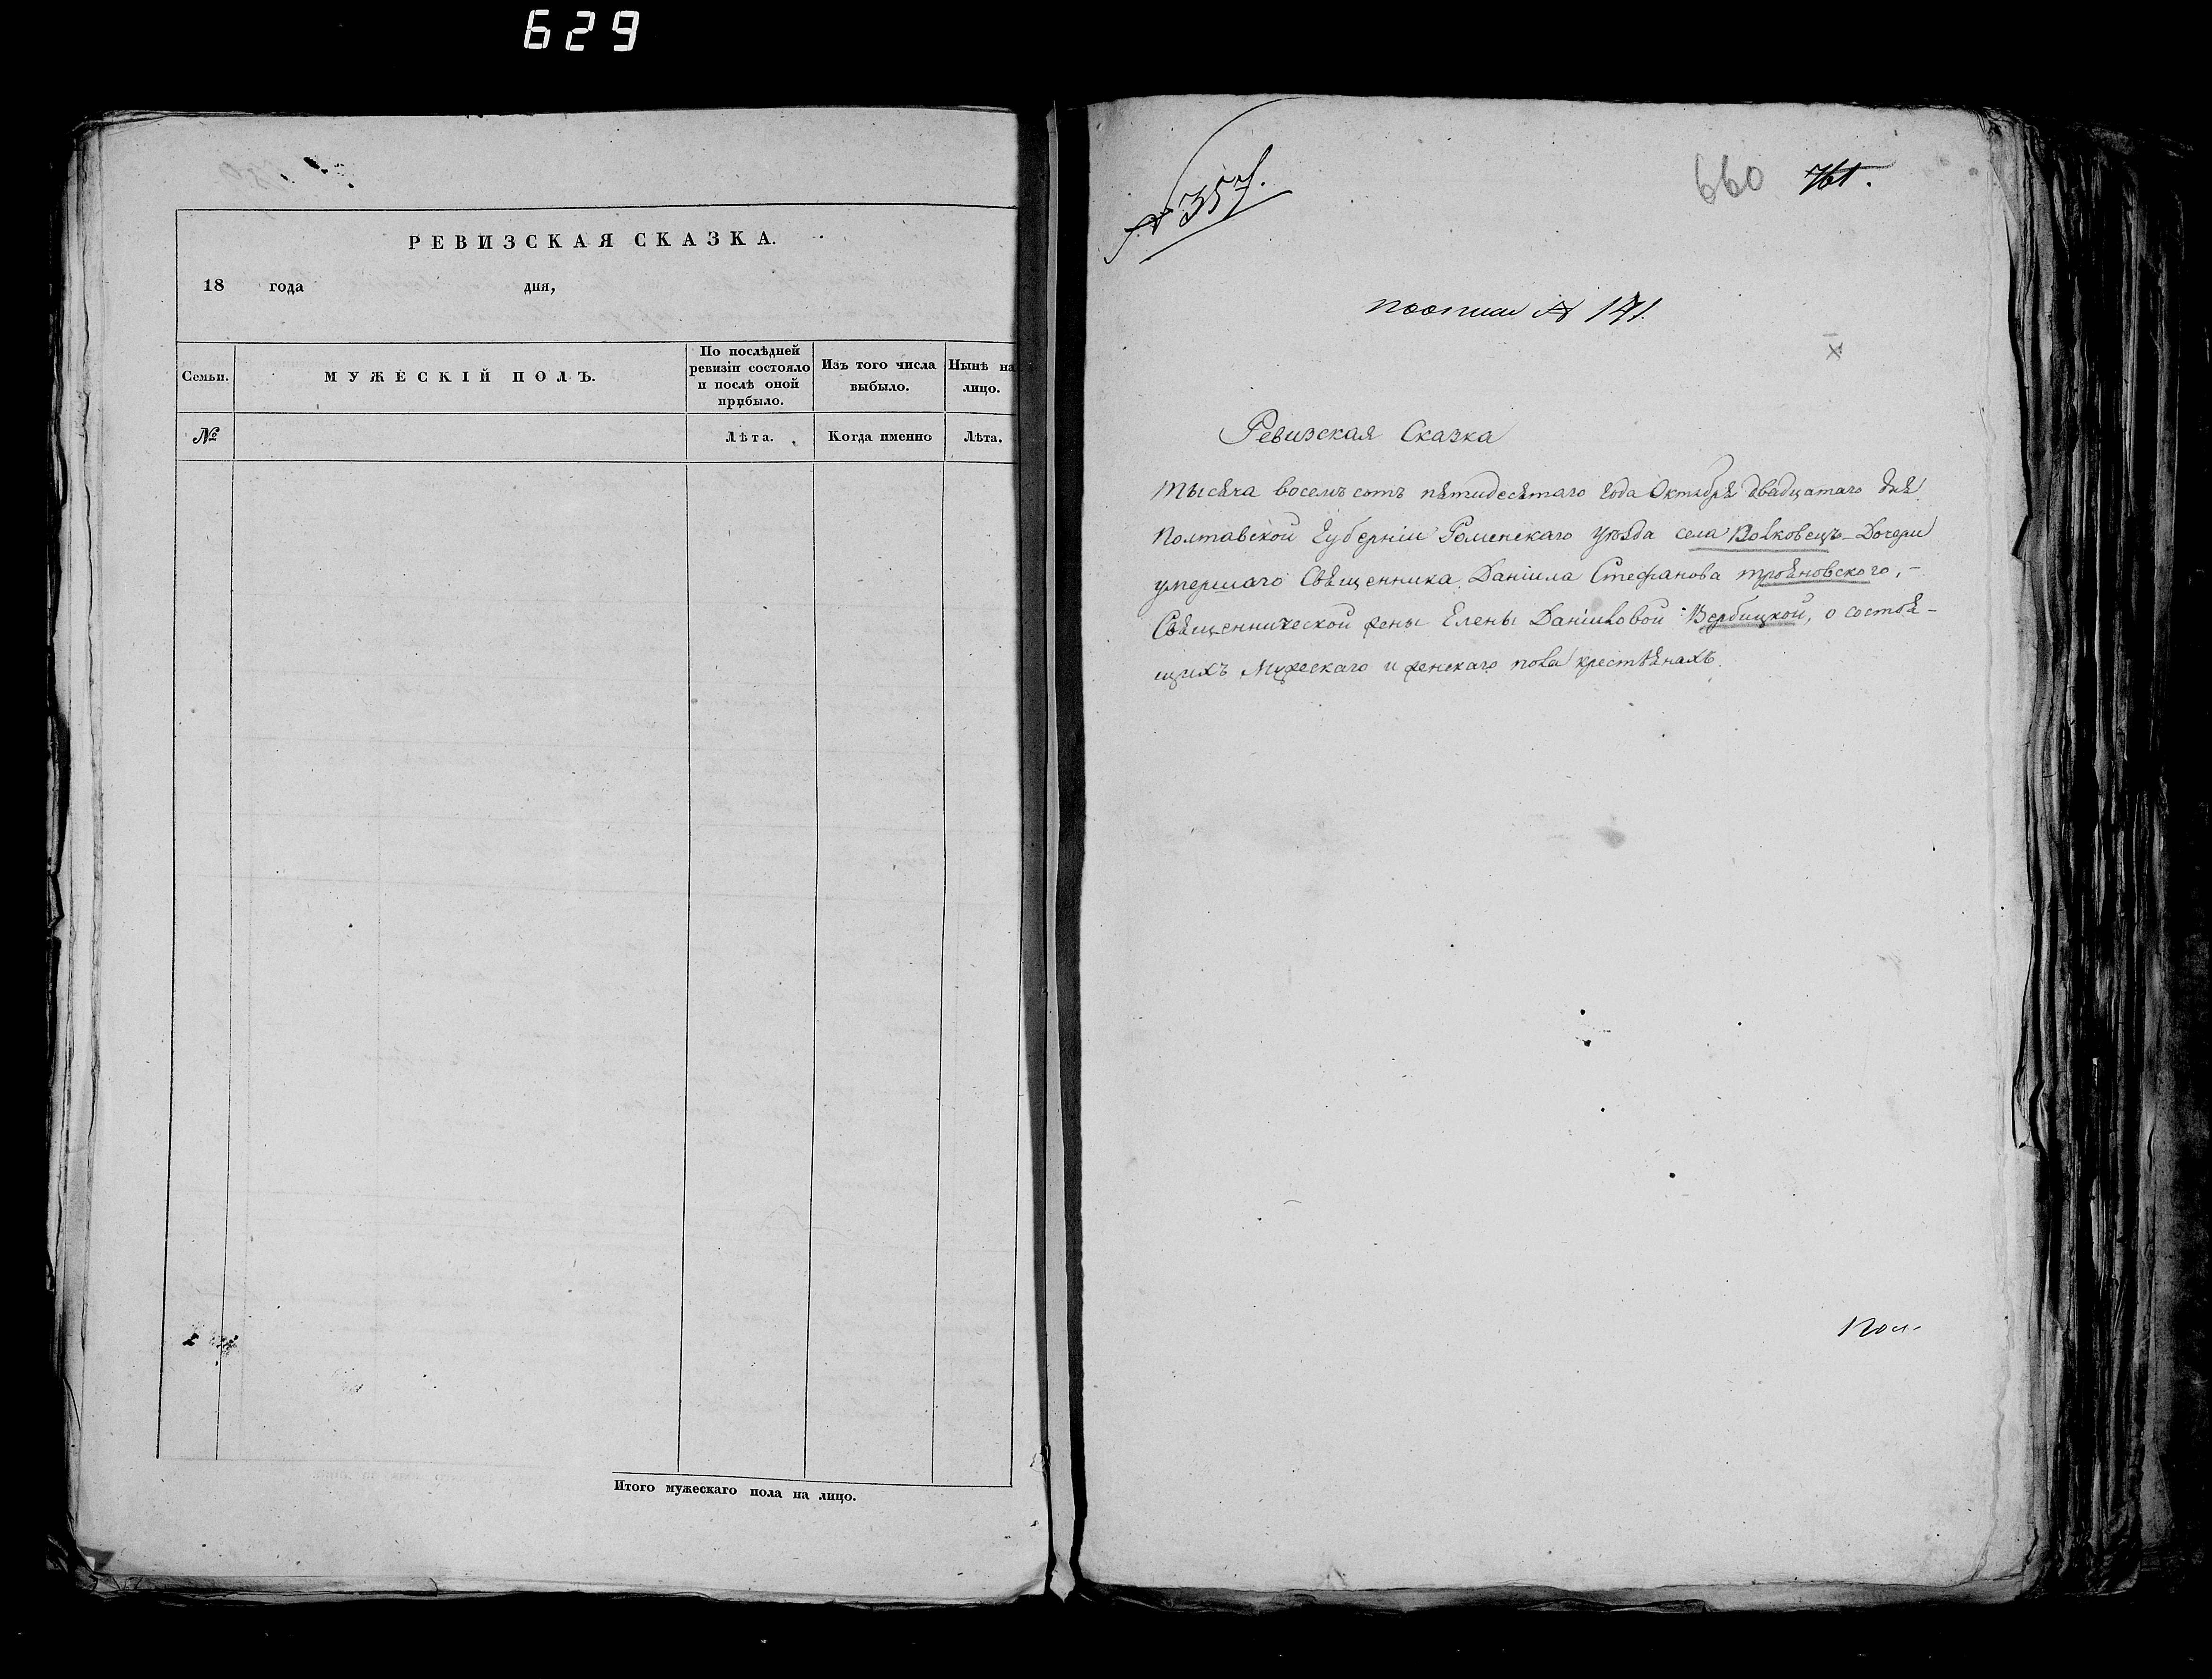 629
РЕВИЗСКАЯ СКАЗКА.
18 года дня,
Семьи.
МУЖЕСКІЙ ПОЛЪ.
По послѣдней
ревизіи состояло
и послѣ оной
прибыло.
Изъ того числа
выбыло.
Нынѣ на
лицо.
№
Лѣта.
Когда именно
Лѣта.
Итого мужескаго пола на лицо.
№ 357.
660 761.
№ 171.
Ревизская Сказка
Тысяча восемъ сотъ пятидесятаго года Октября двадцатаго дня
Полтавской Губерніи Роменскаго уѣзда села Волковецъ – Дочери
умершаго Священника Даніила Стефанова Трояновского, –
Священнической жены Елены Даніиловой Вербицкой, о состоя-
щихъ Мужескаго и женскаго пола крестьянахъ.